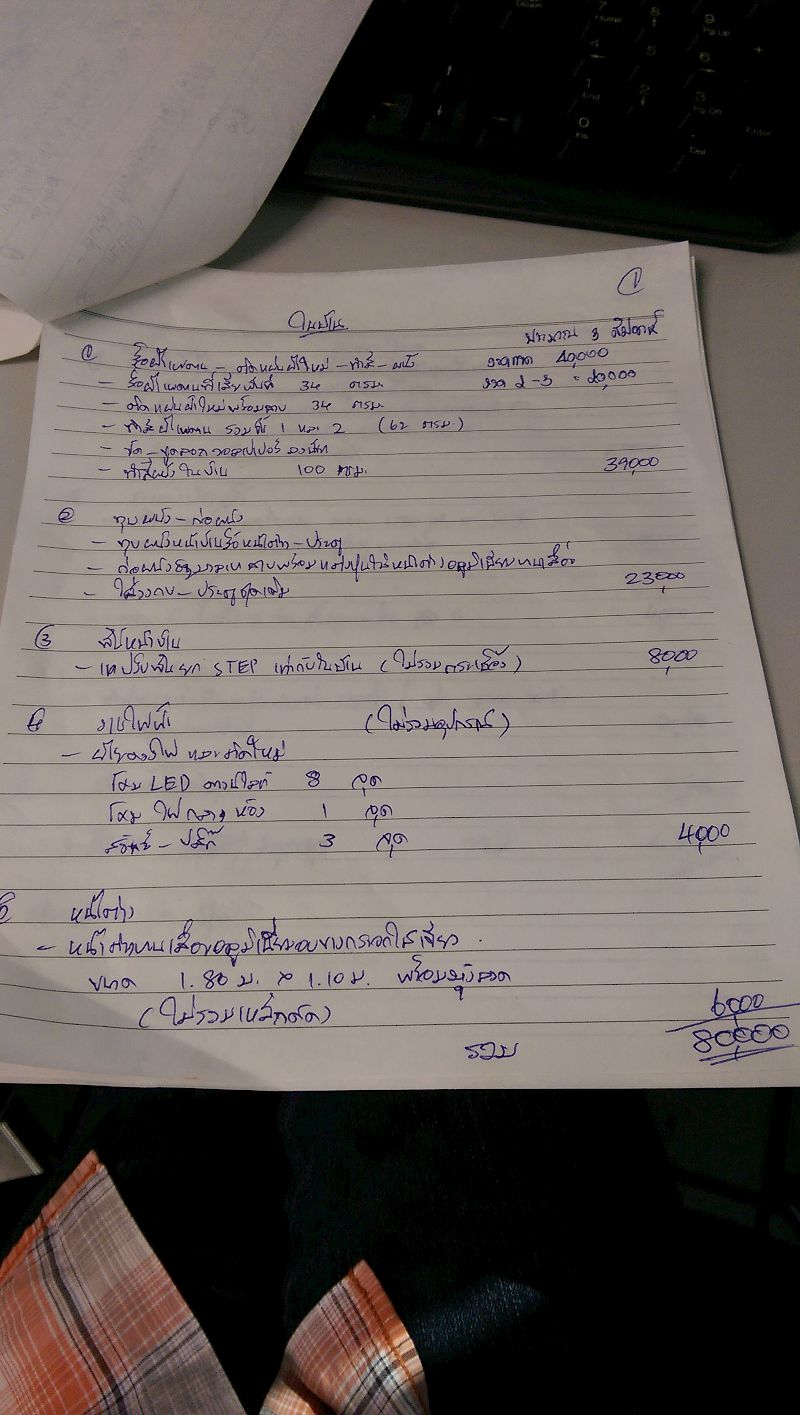 ①
ในบ้าน
ประมาณ 3 สัปดาห์
① รื้อฝ้าเพดาน - ติดแผ่นฝ้าใหม่ - ทาสี - ผนัง
งวดแรก 40,000
- รื้อฝ้าเพดานที่เสียทันที 34 ตรม.
งวด 2-3 = 20,000
- ติดแผ่นฝ้าใหม่พร้อมฉาบ 34 ตรม.
- ทาสีฝ้าเพดาน รวมชั้น 1 และ 2 (62 ตรม.)
- ขัด - ขูดลอกวอลเปเปอร์
- ทาสีผนังในบ้าน 100 ตรม. 39,000
② ทุบผนัง - ก่อผนัง
- ทุบผนังหน้าบ้านรื้อหน้าต่าง - ประตู
- ก่อผนัง ฉาบพร้อม ใส่หน้าต่างอลูมิเนียมบานเลื่อน
- ใส่วงกบ - ประตูชุดเดิม 23,000
③ พื้นหน้าบ้าน
- เทปรับพื้นยก STEP เท่ากับในบ้าน (ไม่รวมกระเบื้อง) 8,000
4 งานไฟฟ้า (ไม่รวมอุปกรณ์)
- ย้ายดวงไฟ และติดใหม่
โคม LED ดาวน์ไลท์ 8 จุด
โคมไฟกลางห้อง 1 จุด
สวิตช์ - ปลั๊ก 3 จุด 4,000
5 หน้าต่าง
- หน้าต่างบานเลื่อนอลูมิเนียมอบขาวกระจกใสเขียว
ขนาด 1.80 ม. x 1.10 ม. พร้อมมุ้งลวด
(ไม่รวมเหล็กดัด) 6,000
รวม 80,000